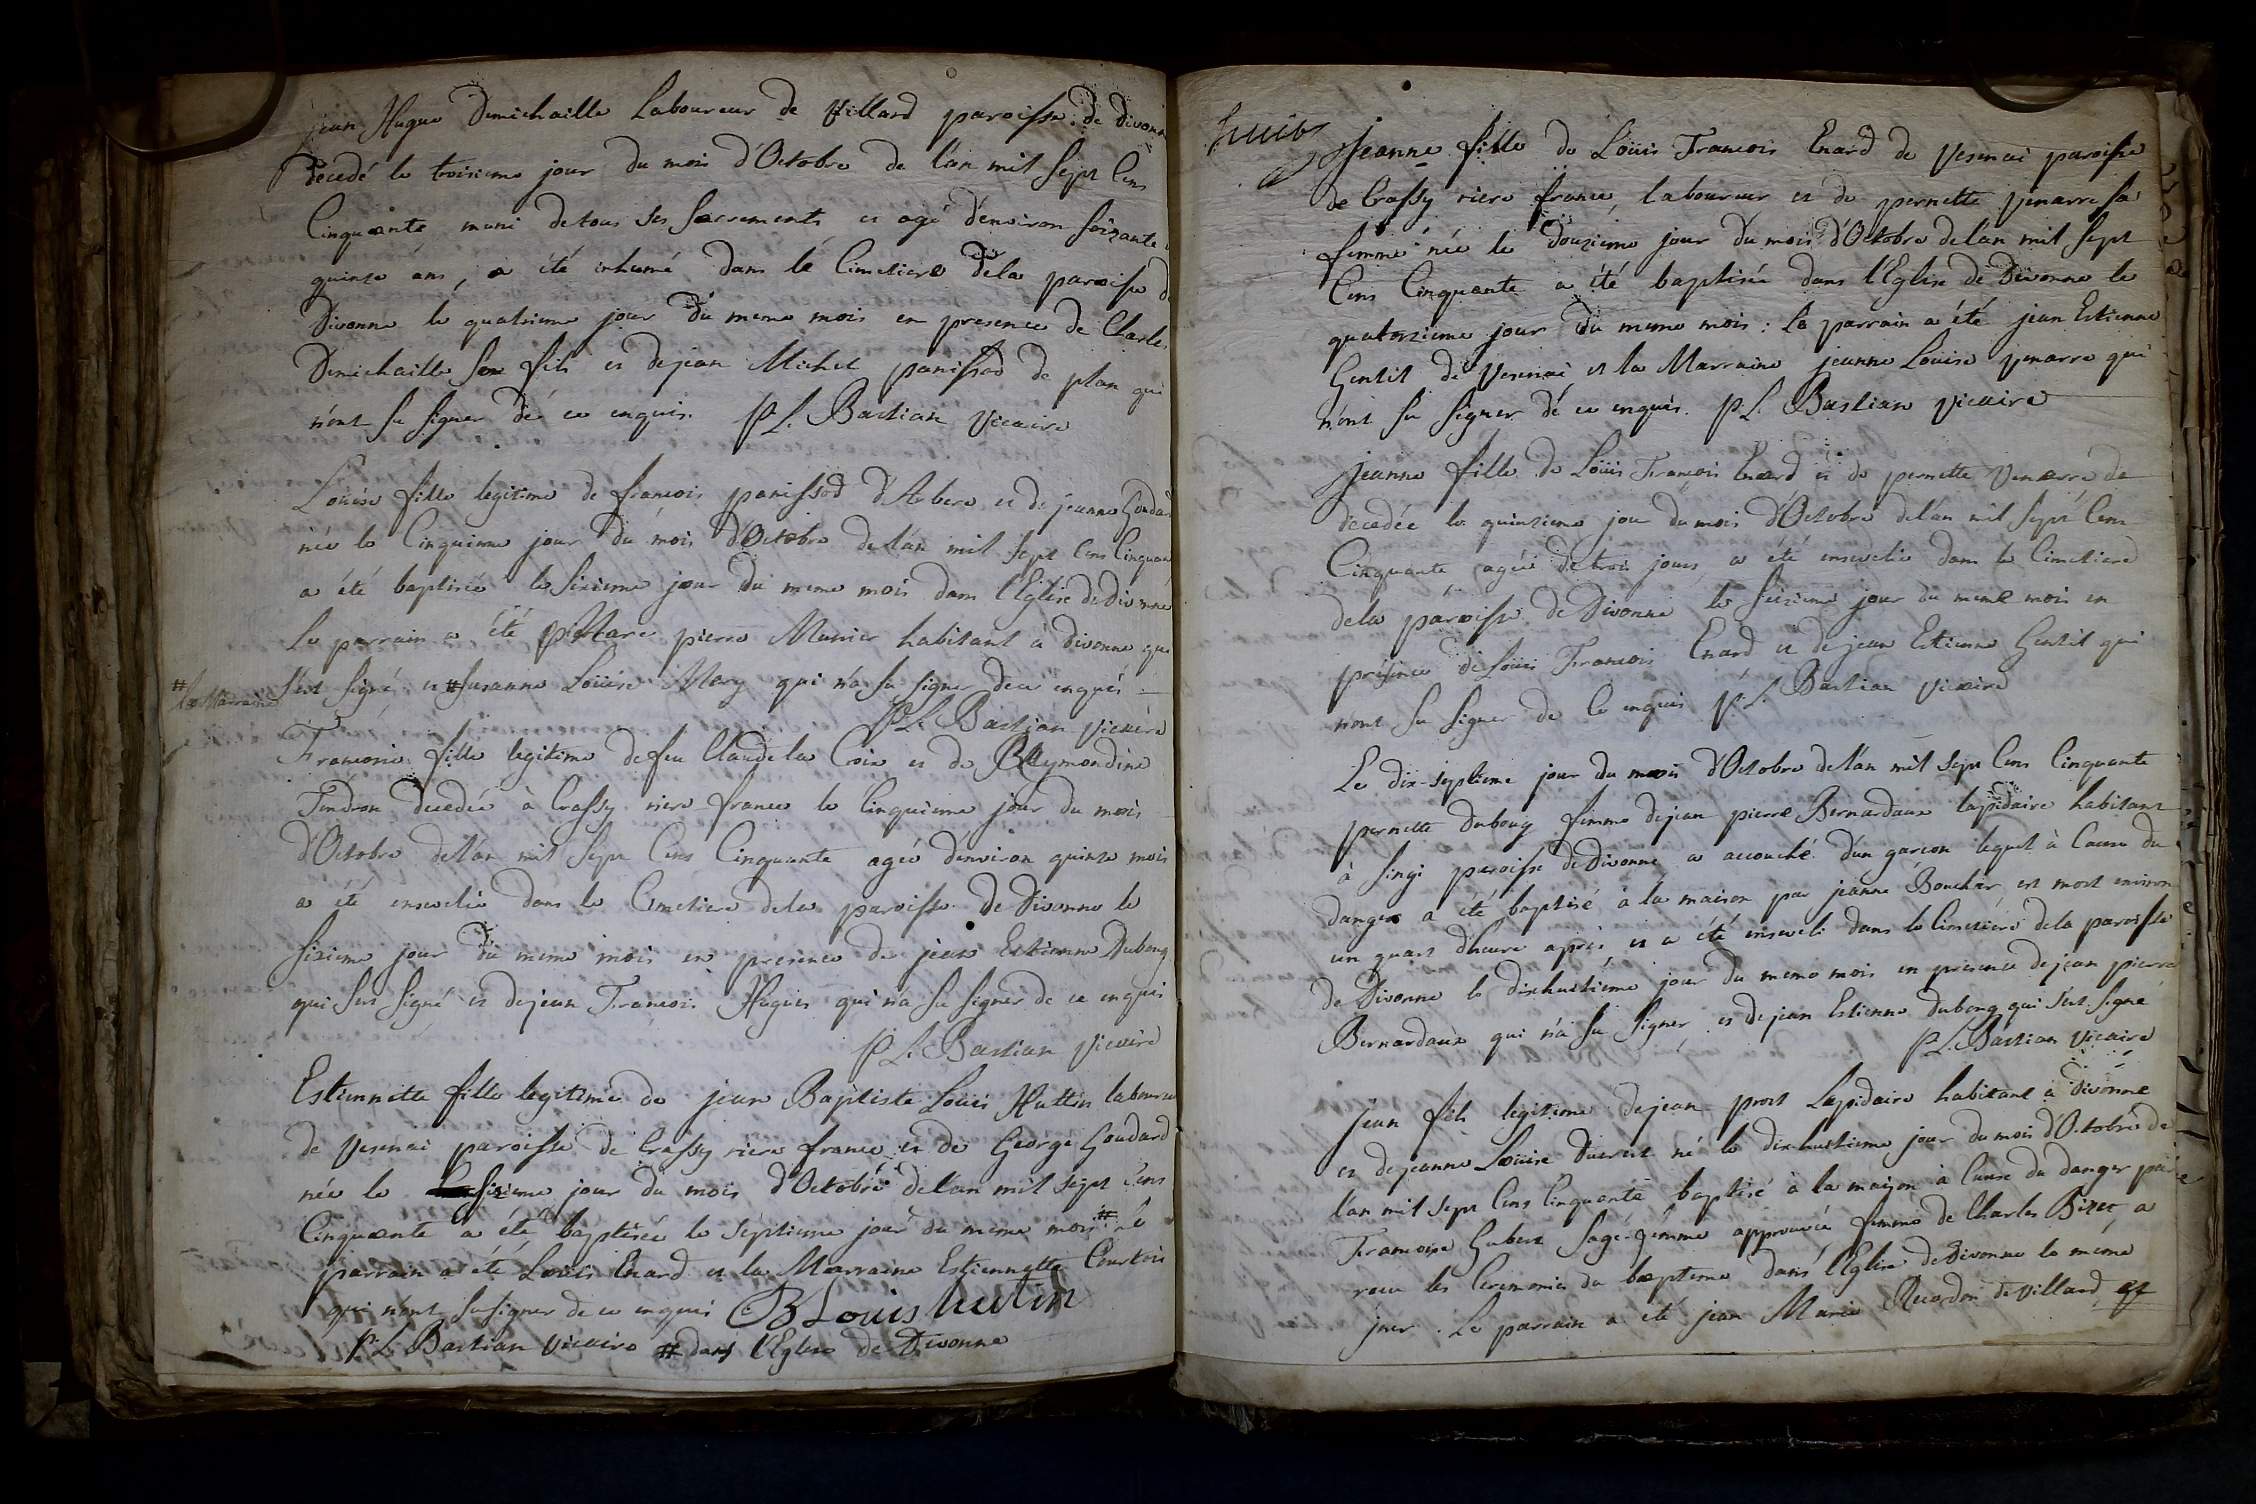 jean Hugue Demichaille Laboureur de Villard paroisse de Divonne
decedé le troisieme jour du mois d'Octobre de l'an mil sept Cens
Cinquante, muni de tous ses sacrements et agé d'environ soixante
quinze ans, a été inhumé dans le Cimetiere de la paroisse de
Divonne le quatrieme jour du meme mois en presence de Charles
Demichaille son fils et de jean Michel panissod de plan qui
n'ont su signer de ce enquis. P L. Bastian Vicaire
Loüise fille legitime de francois panissod d'Arbere et de jeanne
née le Cinquieme jour du mois d'Octobre de l'an mil sept Cens Cinquante
a été baptisée le sixieme jour du meme mois dans l'Eglise de Divonne
Le parrain a été pierre Munier habitant à divonne qui
s'est signé, et # susanne Loüise Mary qui n'a su signer de ce enquis
# la Marraine
P L. Bastian Vicaire
Francoise fille legitime de feu Claude la Croix et de Reymondine
Tendron decedée à Crassy riere france le Cinquieme jour du mois
d'Octobre de l'an mil sept Cens Cinquante agée d'environ quinze mois
a été ensevelie dans le Cimetiere de la paroisse de Divonne le
sixieme jour du meme mois en presence de jean Estienne Duboug
qui s'est signé et de jean Francois Hugues qui n'a su signer de ce enquis
P L. Bastian Vicaire
Estiennette fille legitime de jean Baptiste Loüis Huttin laboureur
de Vesenai paroisse de Crassy riere france et de George Goudard
née le sixieme jour du mois d'Octobre de l'an mil sept Cens
Cinquante a été baptisée le septieme jour du meme mois # le
parrain a été Loüis Enard et la Marraine Estiennette Courtois
qui n'ont su signer de ce enquis B Louis hutin
P. L. Bastian Vicaire # dans l'Eglise de Divonne
huit
Jeanne fille de Loüis Francois Enard de Vesenai paroisse
de Crassy riere france, laboureur et de pernette Venarre sa
femme née le douzieme jour du mois d'Octobre de l'an mil sept
Cens Cinquante a été baptisée dans l'Eglise de Divonne le
quatorzieme jour du meme mois: le parrain a été jean Estienne
Gentil de Vesenai, et la Marraine jeanne Louise Venarre qui
n'ont su signer de ce enquis. P L. Bastian Vicaire
Jeanne fille de Loüis François Enard et de pernette Venarre de
decedée le quinzieme jour du mois d'Octobre de l'an mil sept Cens
Cinquante agée de trois jours, a été ensevelie dans le Cimetiere
de la paroisse de Divonne le seizieme jour du meme mois en
présence de Loüis Francois Enard et de jean Estienne Gentil qui
n'ont su signer de Ce enquis P. L. Bastian Vicaire
Le dix-septieme jour du mois d'Octobre de l'an mil sept Cens Cinquante
pernette duboug femme de jean pierre Bernardaux lapidaire habitant
à singi paroisse de Divonne, a accouché d'un garcon lequel à Cause du
danger a été baptisé à la maison par jeanne Boucher est mort environ
un quart d'heure après, et a été enseveli dans le Cimetiere de la paroisse
de Divonne le dixhuitieme jour du meme mois en presence de jean pierre
Bernardaux qui n'a su signer, et de jean Estienne duboug qui s'est signé
P. L. Bastian Vicaire
jean fils legitime de jean prost Lapidaire habitant à Divonne
et de jeanne Loüise né le dix-huitieme jour du mois d'Octobre de
l'an mil sept Cens Cinquante, baptisé à la maison à Cause du danger par
Francoise Gubert sage-femme approuvée femme de Charles Bizet, a
recu les Ceremonies du bapteme dans l'Eglise de Divonne le même
jour. Le parrain a été jean Marie Recordon de Villard, et